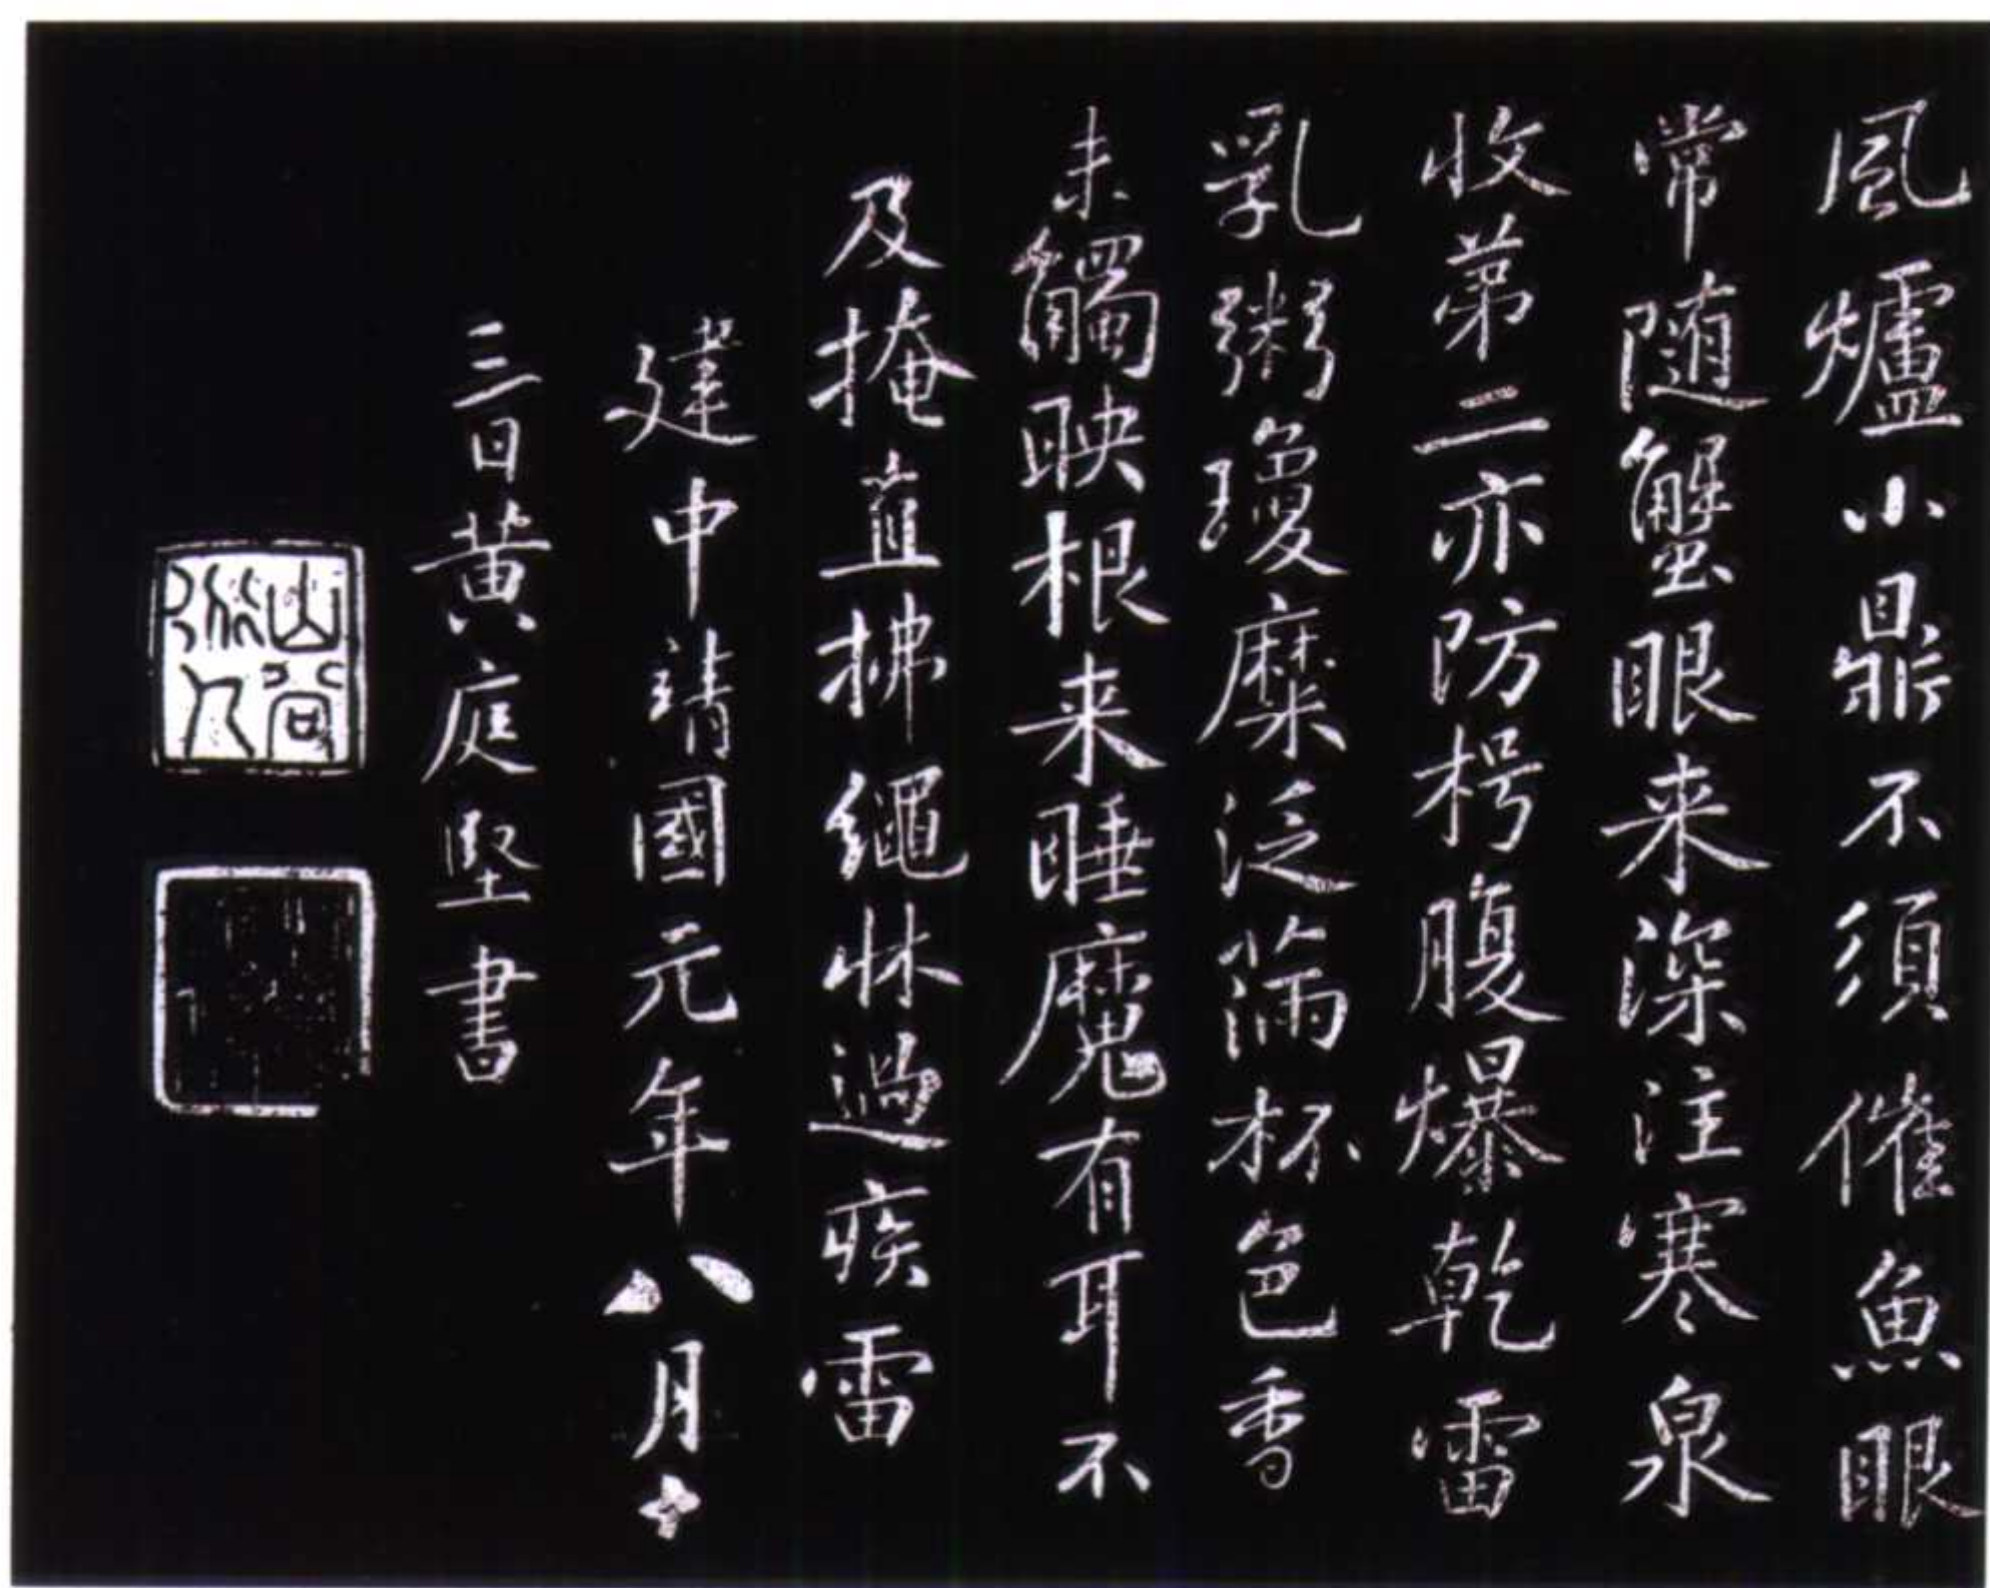 風爐小鼎不須催魚眼
常随蟹眼来深注寒泉
收苐二亦防枵腹爆乾雷
乳粥瓊糜泛滿杯色香
未觸映根来睡魔有耳不
及掩直拂繩牀過疾雷
建中靖國元年八月十
三日黄庭堅書
山谷
道人